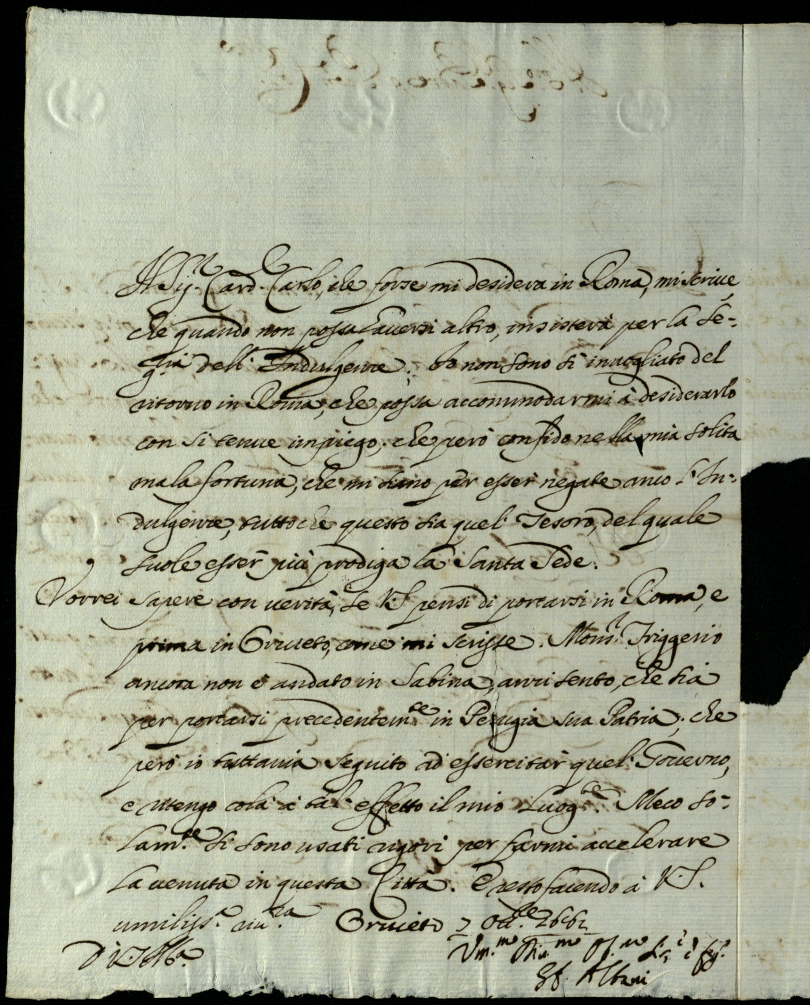 Il Sig.r Card.l Carlo, che forse mi desidera in Roma, mi scrive,
che quando non possa haversi altro, insisterà per la Se-
g.ria dell'Indulgenze. Io non sono sì invogliato del
ritorno in Roma, che possa accommodarmi à desiderarlo
con sì tenue impiego; che però confido nella mia solita
mala fortuna, che mi siano per esser negate anco l'In-
dulgenze, tutto che questo sia quel Tesoro, del quale
suole esser più prodiga la Santa Sede.
Vorrei sapere con verità, se V.S. pensi di portarsi in Roma, e
prima in Orvieto, come mi scrisse. Mons.r Friggerio
ancora non è andato in Sabina, anzi sento, che sia
per portarsi precedentem.te in Perugia sua Patria; che
però io tuttavia seguito ad essercitar quel Governo,
e ritengo colà à tal effetto il mio Luog.te. Meco so-
lam.te si sono usati rigori per farmi accelerare
la venuta in questa Città. E resto facendo à V.S.
umiliss.a riv.za Orvieto 7 Ott.e 1661
D V.S. Ill.ma
Gf. Albani